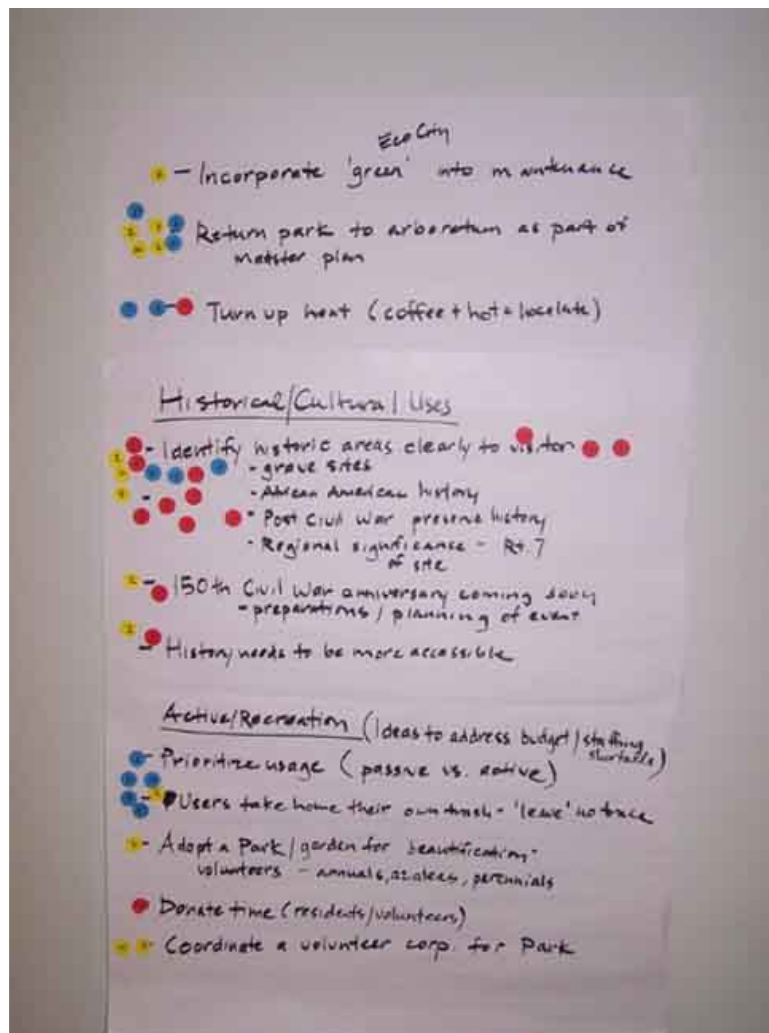 Eco City
- Incorporate 'green' into maintenance
Return park to arboretum as part of
Matster plan
Turn up heat (coffee + hot chocolate)
Historical/Cultural Uses
- Identify historic areas clearly to visitor
- grave sites
- - African American history
- Post Civil War preserve history
- Regional significance - Rt. 7
of site
- 150th Civil War anniversary coming soon
- preparations / planning of event
- History needs to be more accessible
Active/Recreation (Ideas to address budget/staffing
shortfalls)
- Prioritize usage (passive vs. active)
- Users take home their own trash - 'leave' no trace
- Adopt a Park/garden for beautification -
volunteers - annuals, azaleas, perennials
Donate time (residents/volunteers)
- Coordinate a volunteer corp. for Park